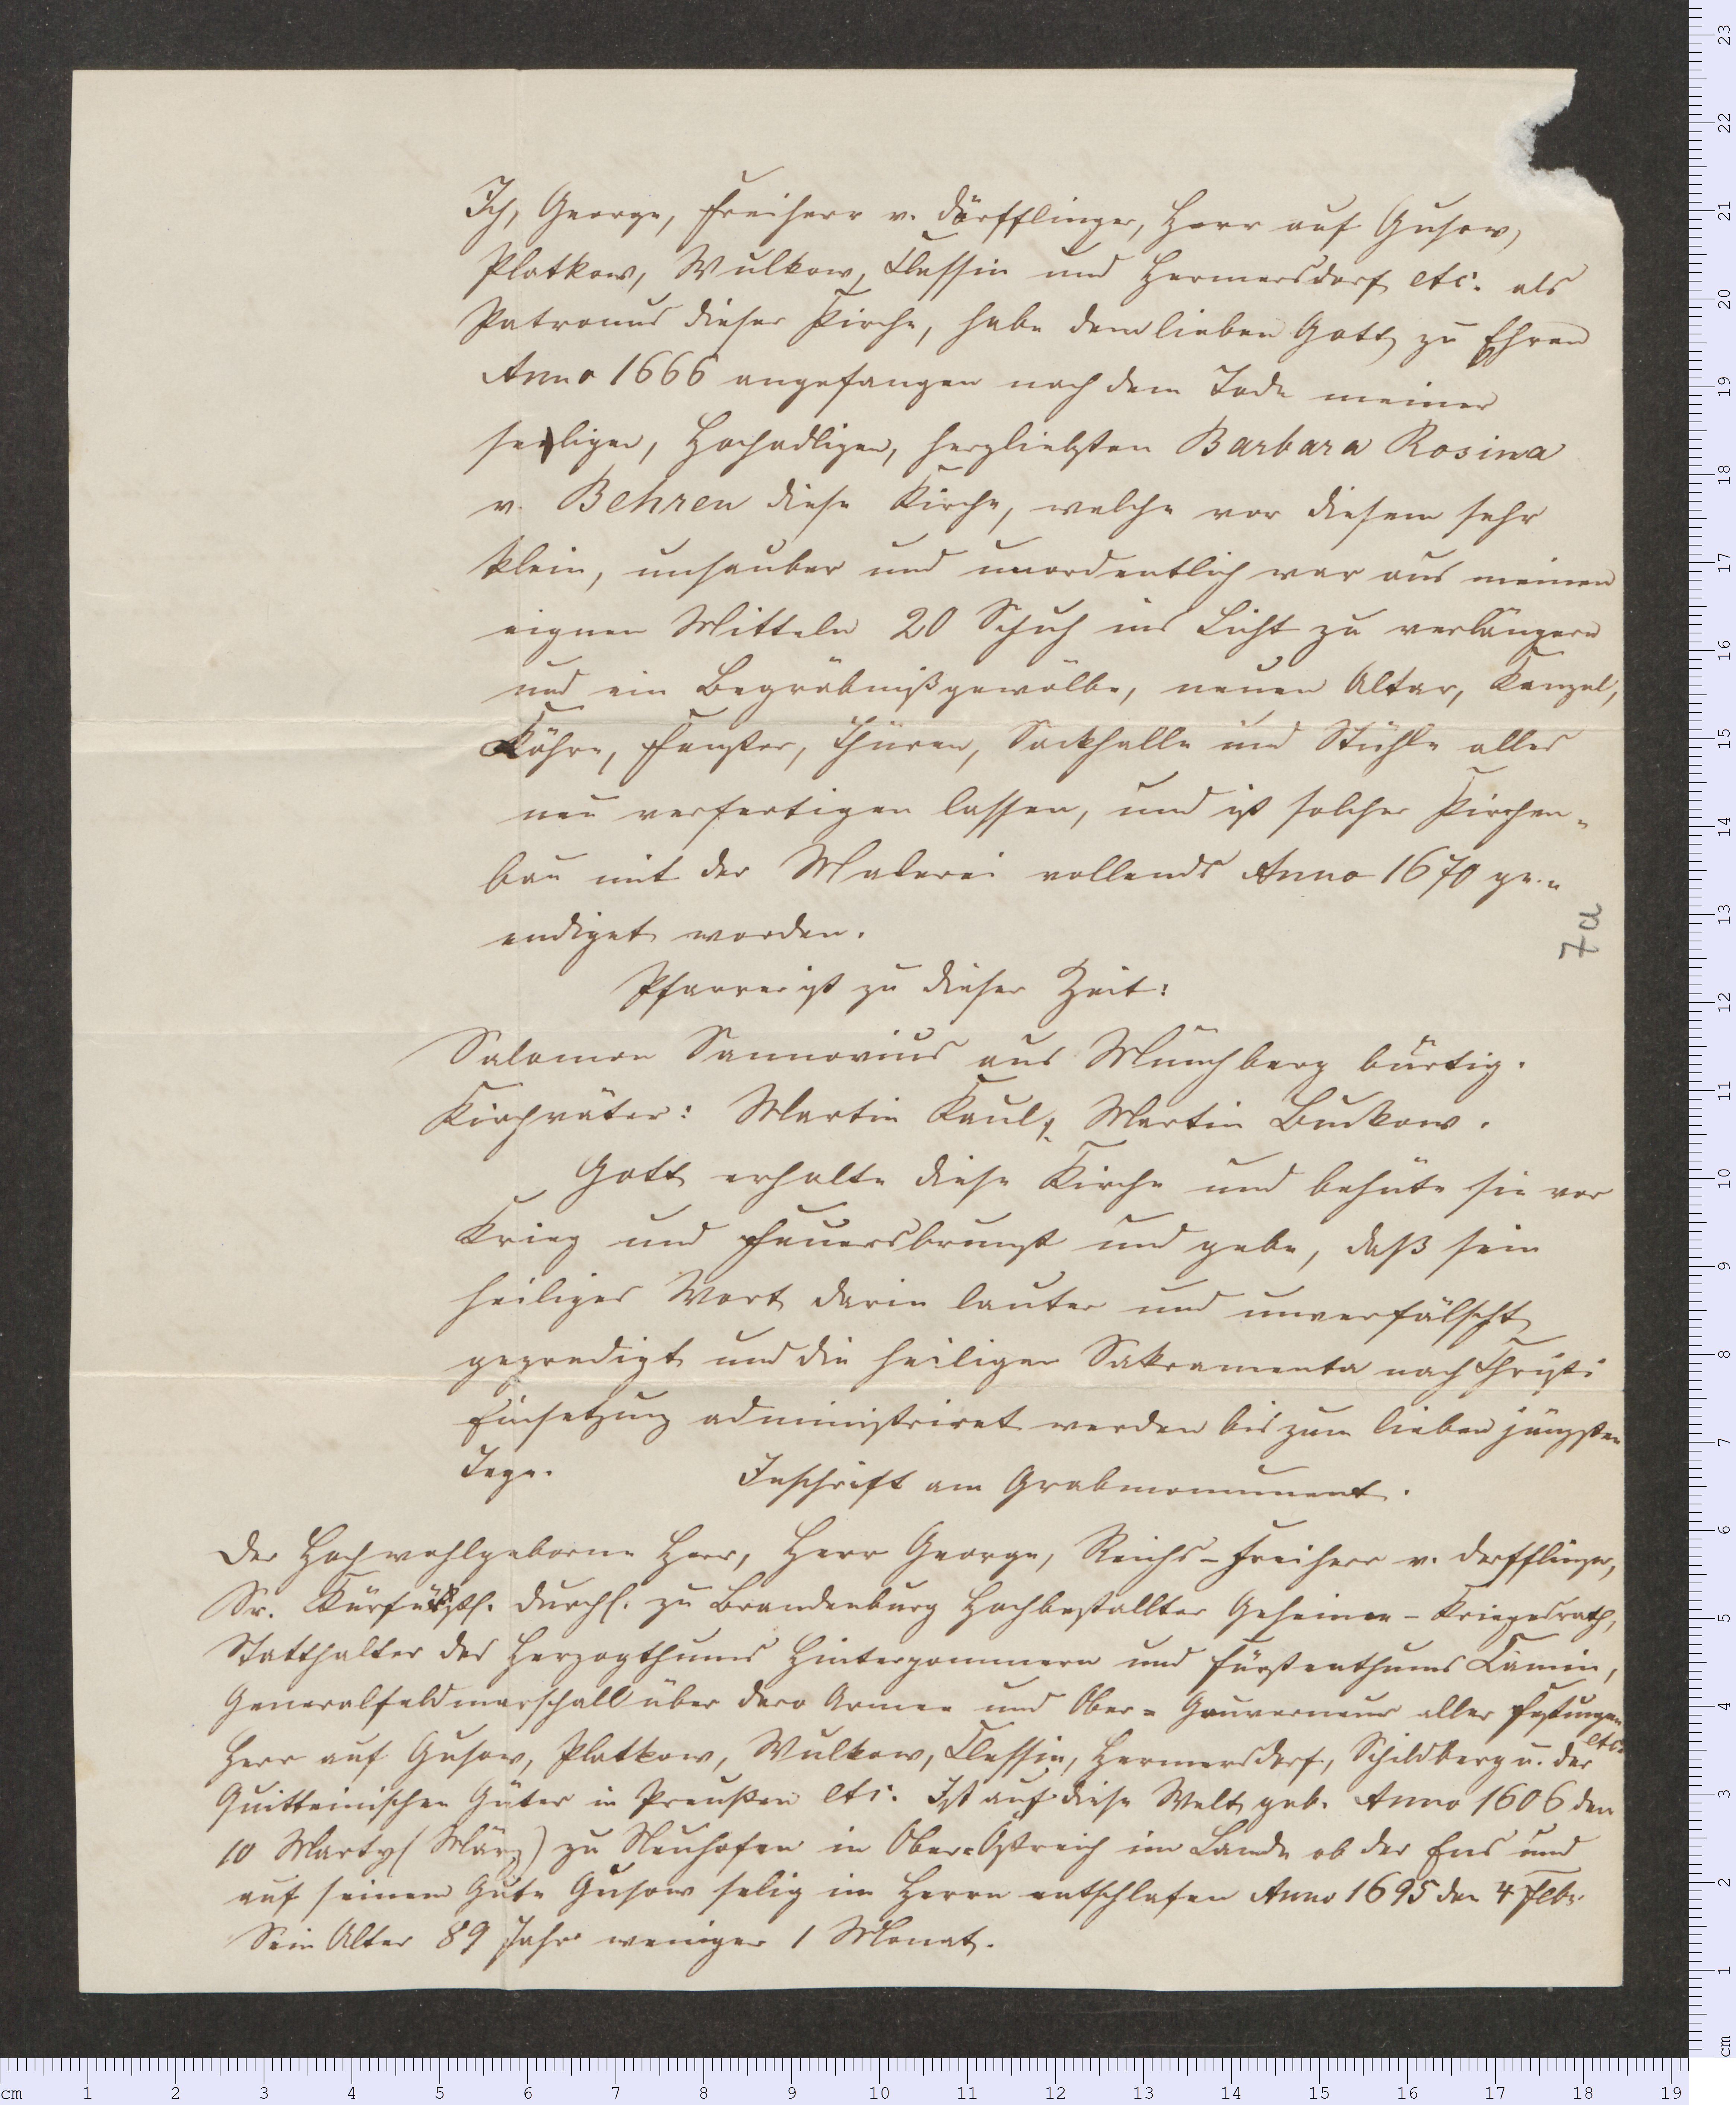 Ich, George, Freiherr v. Dörfflinger, Herr auf Gusow,
Platkow, Wulkow, Clessin und Hermersdorf etc. als
Patronus dieser Kirche, habe dem lieben Gott zu Ehren
Anno 1666 angefangen nach dem Tode meiner
seeligen, Hochadligen, herzliebsten Barbara Rosina
v. Behren diese Kirche, welche vor diesem sehr
klein, unsauber und unordentlich war aus meinen
eignen Mitteln 20 Schuh ins Licht zu verlängern
und ein Begräbnißgewölbe, neuen Altar, Kanzel,
Köhre, Fenster, Thüren, Sackhalle und Stühle alles
neu verfertigen lassen, und ist solcher Kirchen-
bau mit der Malerei vollends Anno 1670 ge-
endiget worden.
7a
Pfarrer ist zu dieser Zeit:
Salomon Sannovius aus Münchberg bürtig.
Kirchväter: Martin Kaul, Martin Buckow.
Gott erhalte diese Kirche und behüte sie vor
Krieg und Feuersbrunst und gebe, daß sein
heiliges Wort darin lauter und unverfälscht
gepredigt und die heiligen Sakramenta nach Christi
Einsetzung administriret werden bis zum lieben jüngsten
Tage.
Inschrift am Grabmonument.
Der Hochwohlgeborne Herr, Herr George, Reichs-Freiherr v. Derfflinger,
Sr. Kurfürstl. Durchl. zu Brandenburg Hochbestallter Geheimer-Kriegesrath,
Statthalter des Herzogthums Hinterpommern und Fürstenthums Camin,
Generalfeldmarschall über dero Armee und Ober-Gouverneur aller Festungen
etc.
Herr auf Gusow, Platkow, Wulkow, Clessin, Hermersdorf, Schildberg u. der
Quitteinischen Güter in Preußen etc. Ist auf diese Welt geb. Anno 1606 den
10 Marty (März) zu Neuhofen in Ober-Östreich im Lande ob der Ens und
auf seinem Gute Gusow selig im Herrn entschlafen Anno 1695 den 4 Febr.
Sein Alter 89 Jahr weniger 1 Monat.